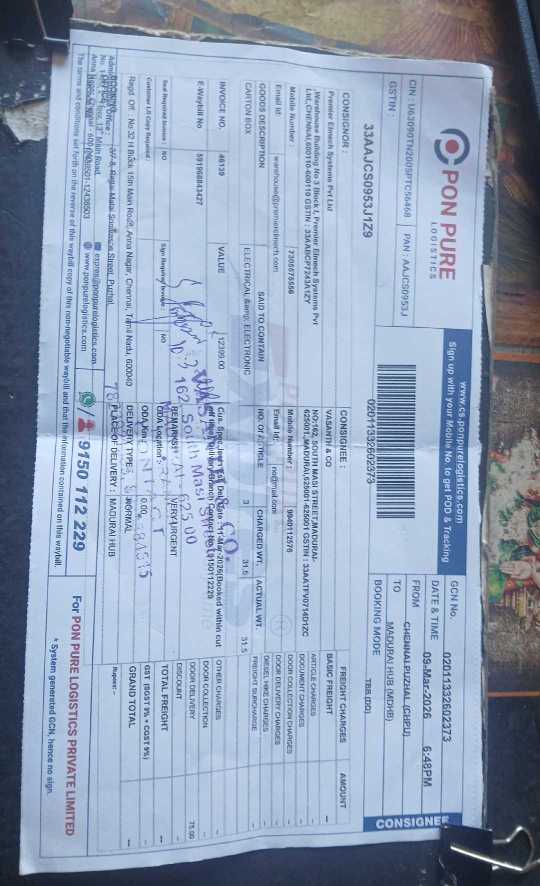 PON PURE
LOGISTICS
www.cs-ponpurelogistics.com
Sign up with your Mobile No. to get POD & Tracking
CIN : U63090TN2005PTC56468 PAN : AAJCS0953J
GSTIN :
33AAJCS0953J1Z9
02011332602373
GCN No. 02011332602373
DATE & TIME 09-Mar-2026 6:48PM
FROM CHENNAI,PUZHAL (CHPU)
TO MADURAI HUB (MDHB)
BOOKING MODE TBB (DD)
CONSIGNEE
CONSIGNOR :
Premier Elmech Systems Pvt Ltd
,Warehouse Building No 3 Block I, Premier Elmech Systems Pvt
Ltd,CHENNAI,600110-600110 GSTIN : 33AABCP7243A1ZY
Mobile Number : 7305075556
Email Id: warehouse@premierelmech.com
CONSIGNEE :
VASANTH & CO
NO:162, SOUTH MASI STREET,MADURAI-
625001,MADURAI,625001-625001 GSTIN : 33AATPV0714D1ZC
Mobile Number : 9940112576
Email Id: no@mail.com
FREIGHT CHARGES AMOUNT
BASIC FREIGHT --
ARTICLE CHARGES
DOCUMENT CHARGES
DOOR COLLECTION CHARGES
DOOR DELIVERY CHARGES
DIESEL HIKE CHARGES
FREIGHT SURCHARGE
OTHER CHARGES
DOOR COLLECTION
DOOR DELIVERY 75.00
DISCOUNT
TOTAL FREIGHT --
GST (SGST 9% + CGST 9%) --
GRAND TOTAL --
Rupees: -
GOODS DESCRIPTION SAID TO CONTAIN NO. OF ARTICLE CHARGED WT. ACTUAL WT.
CARTON BOX ELECTRICAL &amp; ELECTRONIC 3 31.5 31.5
INVOICE NO. 46139 VALUE 12399.00
E-Waybill No 591968843427
11-Mar-2026(Booked within cut
9150112229
Seal Required Invoice : NO
Sign Required Invoice : NO
REMARKS: VERY URGENT
ODA Location :
Customer LR Copy Required :
ODA Km : 0.00
DELIVERY TYPE : NORMAL
PLACE OF DELIVERY : MADURAI HUB
& CO.
162 South Masi Street
625 001
Regd. Off : No.32 H Block 15th Main Road, Anna Nagar, Chennai, Tamil Nadu, 600040
express@ponpurelogistics.com
www.ponpurelogistics.com
9150 112 229
For PON PURE LOGISTICS PRIVATE LIMITED
* System generated GCN, hence no sign.
The terms and conditions set forth on the reverse of this waybill copy of this non-negotiable waybill and that the information contained on this waybill.